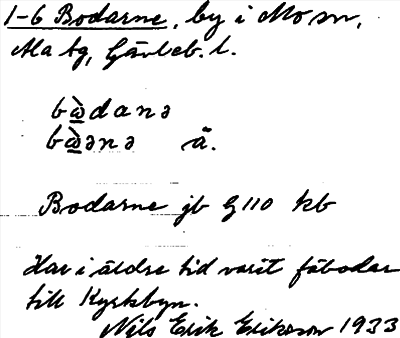 1-6 Bodarne, by i Mo sn,
Ala tg, Gävleb. l.
bὼdanə
bὼənə ä.
Bodarne jb G 110 kb
Har i äldre tid varit fäbodar
till Kyrkbyn.
Nils Erik Eriksson 1933